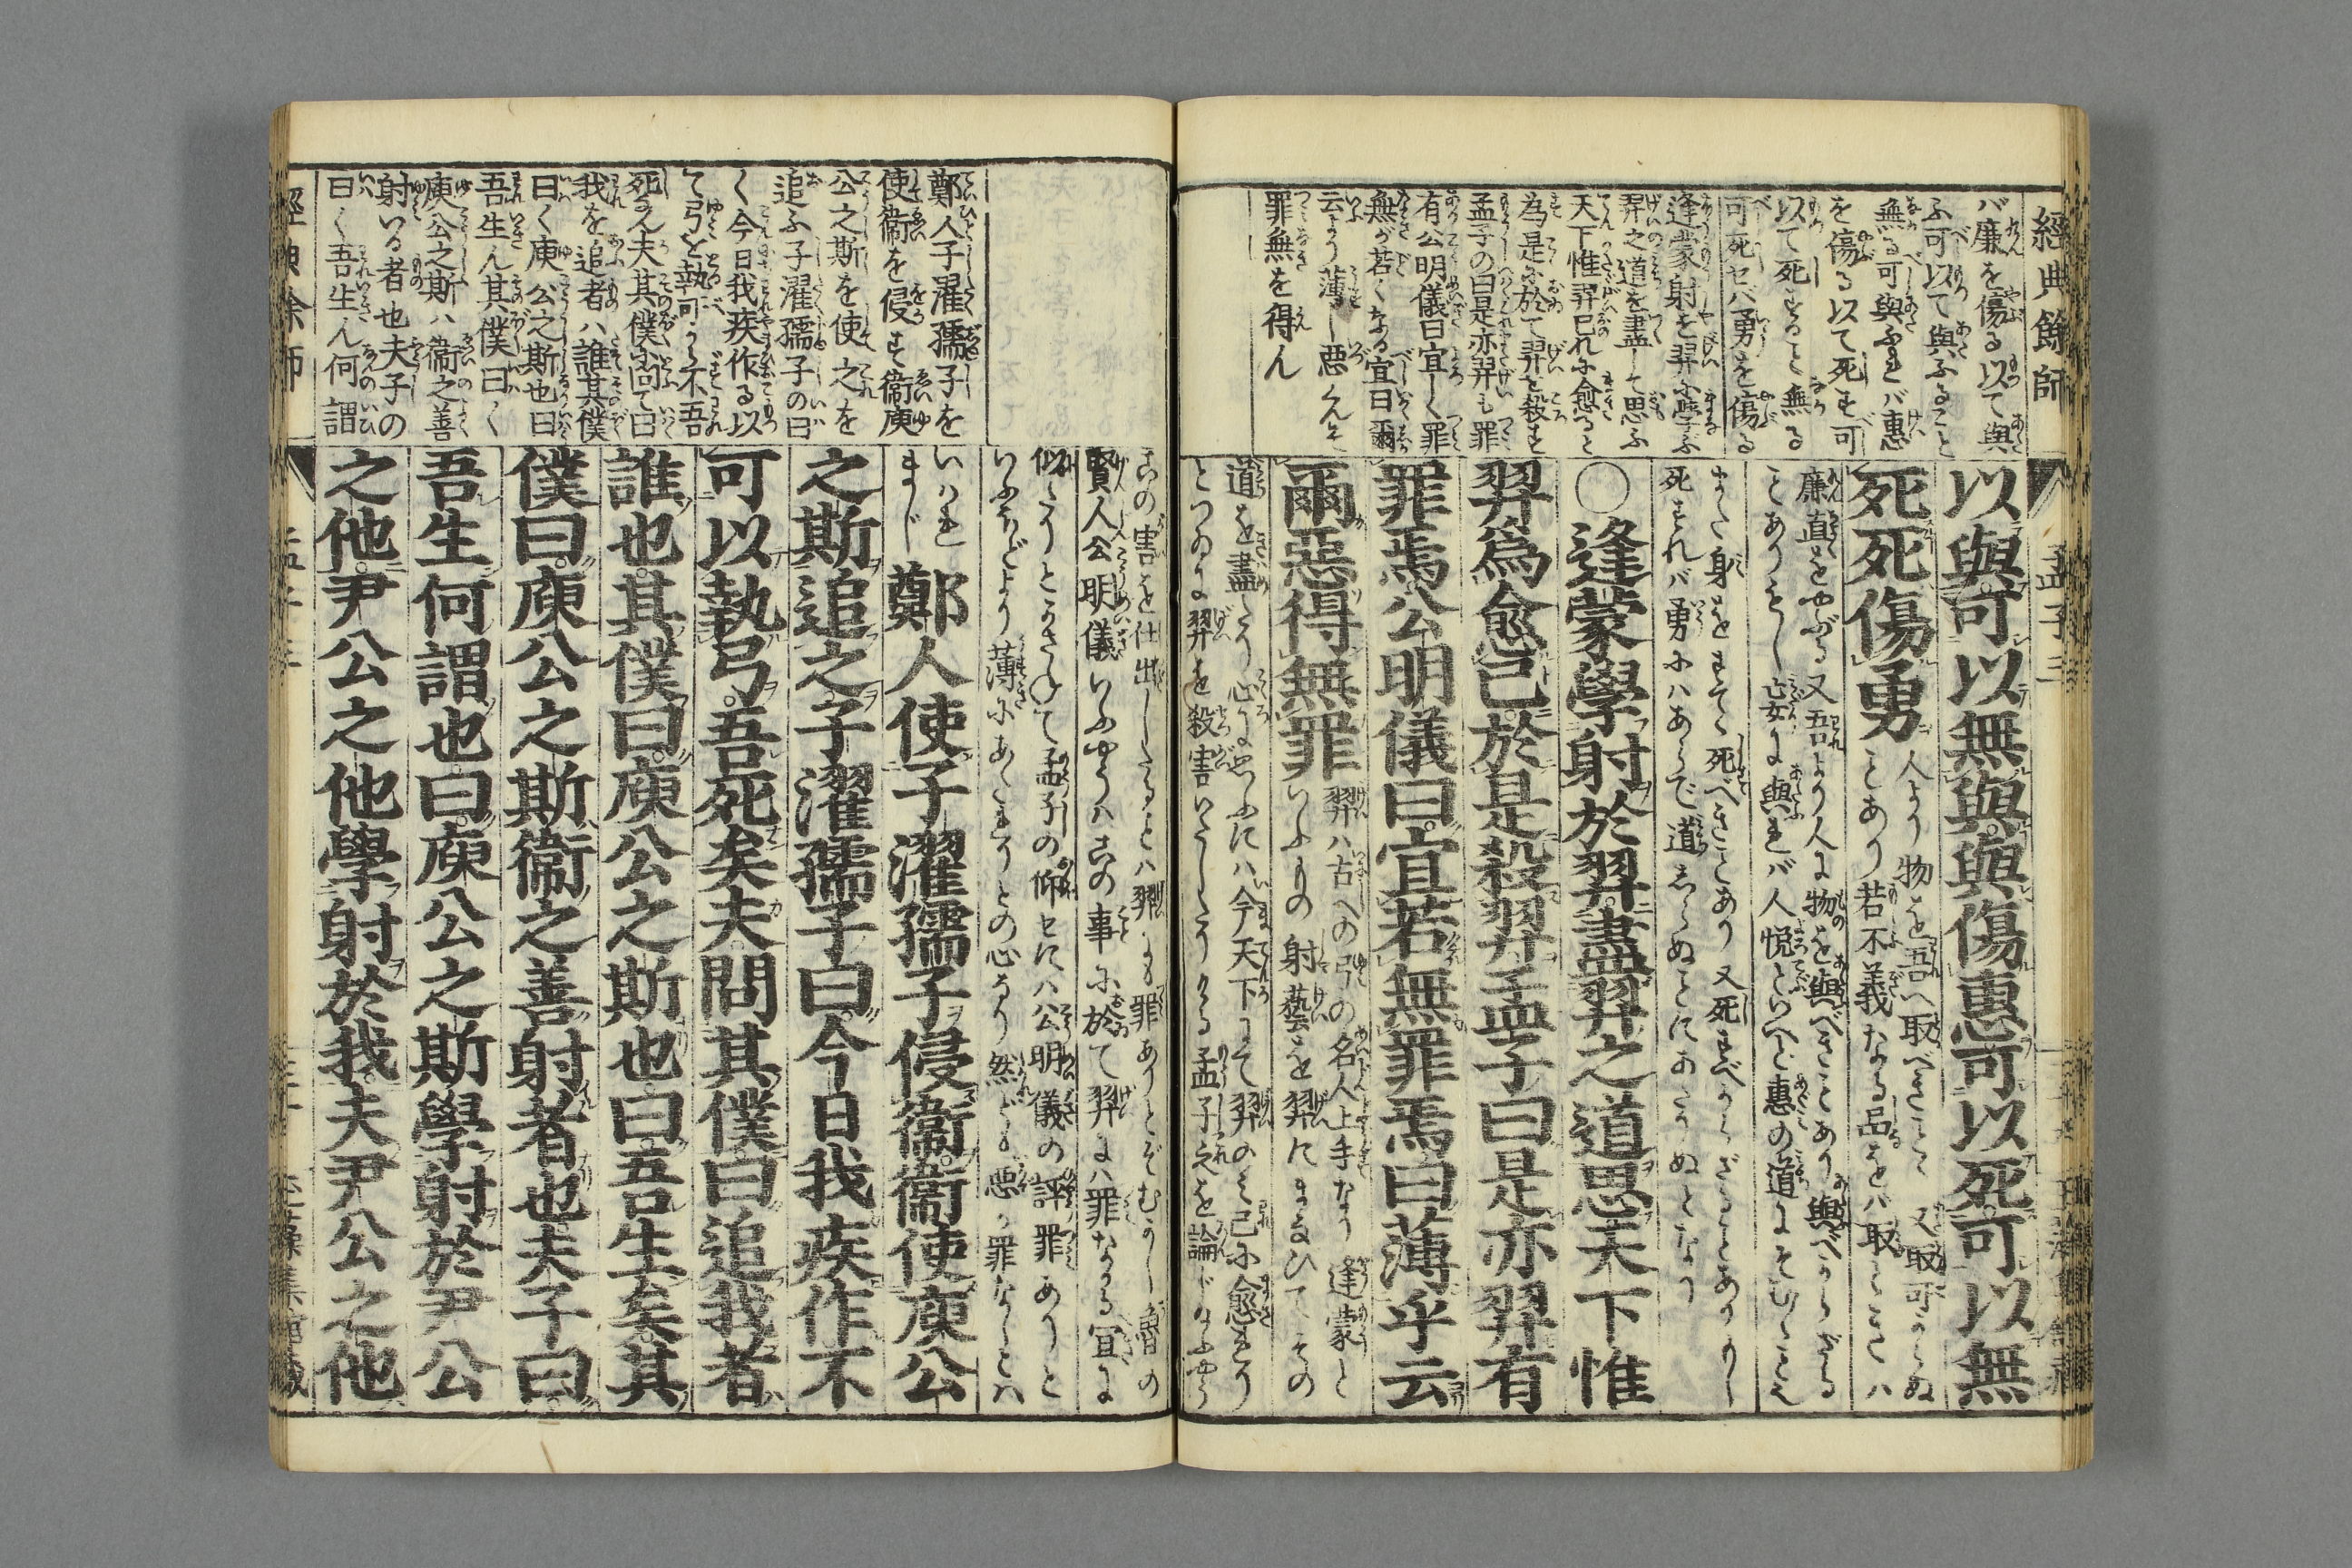 經典餘師
孟子三
バ廉を傷る以て與
ふ可以て與ふること
無る可與ふれバ惠
を傷る以て死す可
以て死すること無る
可死セバ勇を傷る
逢蒙射を羿に學ぶ
羿之道を盡して思ふ
天下惟羿己れに愈ると
為是に於て羿を殺す
孟子の曰是亦羿も罪
有公明儀曰宜しく罪
無が若くなる宜曰爾
云より薄し惡くんぞ
罪無を得ん
以與可以無與與傷惠可以死可以無
死死傷勇
人より物を吾へ取べきことく又取可からぬ
ことあり若不義なる品をバ取ときハ
廉直をやぶる又吾より人に物を與べきことあり與べからざる
ことありもし妄に與れバ人悦といへど惠の道にそむくことゝ
また身をすてゝ死べきことあり又死すべからざることありもし
死すれバ勇にハあらで道しらぬことにあたらぬとなり
○逢蒙學射於羿盡羿之道思天下惟
羿爲愈己於是殺羿孟子曰是亦羿有
罪焉公明儀曰宜若無罪焉曰薄乎云
爾惡得無罪
羿ハ古への弓の名人上手なり逢蒙と
いふもの射藝を羿にまなひてその
道を盡くり心に思ふにハ今天下にて羿のミ己に愈れり
とつゐに羿を殺害いたしたりける孟子之を論じのふやう
この害を仕出したることハ羿にも罪ありとぞむかし魯の
賢人公明儀いふやうハこの事に於て羿にハ罪なかる宜に
似たりとかさねて孟子の仰セにハ公明儀の評罪ありと
いふほどより薄にあたれりとの心なり然ども惡ク罪なしとハ
いはれ
まじ
鄭人使子濯孺子侵衞衞使庾公
之斯追之子濯孺子曰今日我疾作不
可以執弓吾死矣夫問其僕曰追我者
誰也其僕曰庾公之斯也曰吾生矣其
僕曰庾公之斯衞之善射者也夫子曰
吾生何謂也曰庾公之斯學射於尹公
之他尹公之他學射於我夫尹公之他
鄭人子濯孺子を
使衞を侵す衞庾
公之斯を使之を
追ふ子濯孺子の曰
く今日我疾作る以
て弓を執可らず吾
死なん夫其僕に問て曰
我を追者ハ誰其僕
曰く庾公之斯也曰
吾生ん其僕曰く
庾公之斯ハ衞之善
射いる者也夫子の
曰く吾生ん何謂